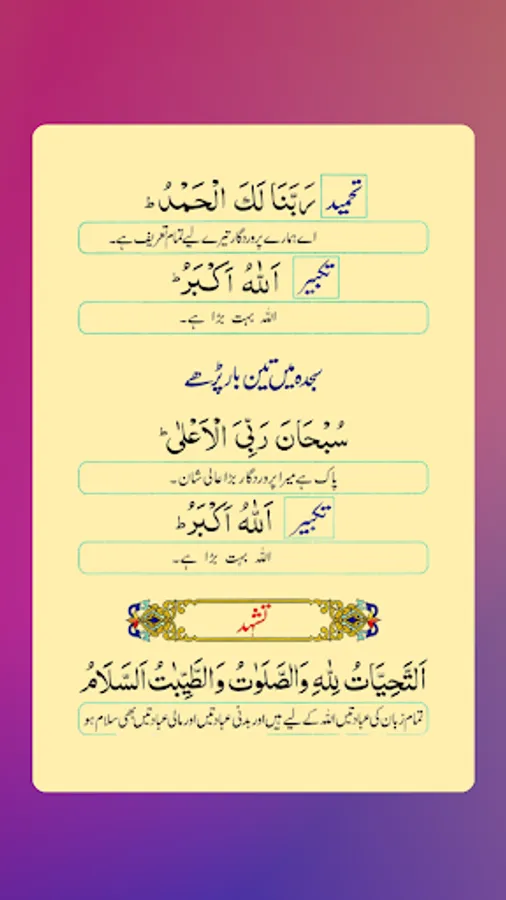 تحمید رَبَّنَا لَكَ الْحَمْدُ ؕ
اے ہمارے پروردگار تیرے لیے تمام تعریف ہے۔
تکبیر اَللّٰهُ اَكْبَرُ ؕ
اللہ بہت بڑا ہے۔
سجدہ میں تین بار پڑھے
سُبْحَانَ رَبِّیَ الْاَعْلٰی ؕ
پاک ہے میرا پروردگار بڑا عالی شان۔
تکبیر اَللّٰهُ اَكْبَرُ ؕ
اللہ بہت بڑا ہے۔
تشہد
اَلتَّحِيَّاتُ لِلّٰهِ وَالصَّلَوٰتُ وَالطَّيِّبٰتُ اَلسَّلَامُ
تمام زبان کی عبادتیں اللہ کے لیے ہیں اور بدنی عبادتیں اور مالی عبادتیں بھی سلام ہو